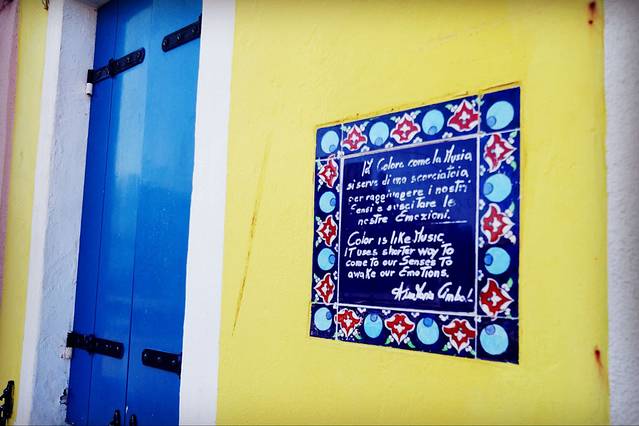 Il Colore come la Musica
si serve di una scorciatoia
per raggiungere i nostri
Sensi e suscitare le
nostre Emozioni.
Color is like Music,
iT uses shorter way To
come to our Senses To
awake our Emotions.